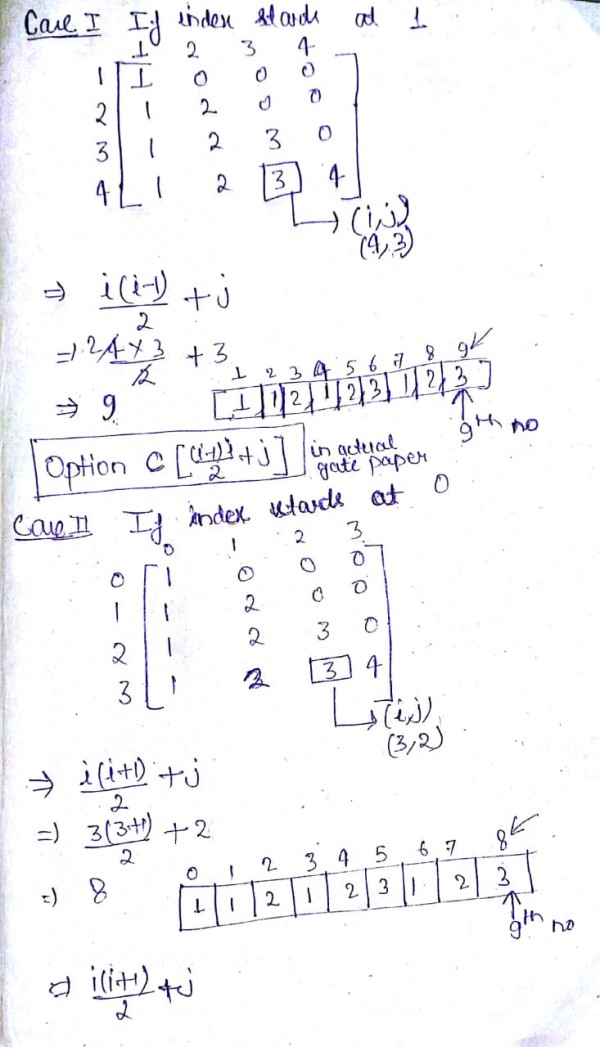 Case I If index starts at 1
1 2 3 4
1 1 0 0 0
2 1 2 0 0
3 1 2 3 0
4 1 2 3 4
(i,j)
(4,3)
⇒ i(i-1)/2 + j
⇒ 2 4 × 3 / 2 + 3
1 2 3 4 5 6 7 8 9
⇒ 9
1 1 2 1 2 3 1 2 3
9th no
Option C [(i-1)i/2 + j] in actual gate paper
Case II If index starts at 0
0 1 2 3
0 1 0 0 0
1 1 2 0 0
2 1 2 3 0
3 1 2 3 4
(i,j)
(3,2)
⇒ i(i+1)/2 + j
⇒ 3(3+1)/2 + 2
0 1 2 3 4 5 6 7 8
⇒ 8
1 1 2 1 2 3 1 2 3
9th no
⇒ i(i+1)/2 + j